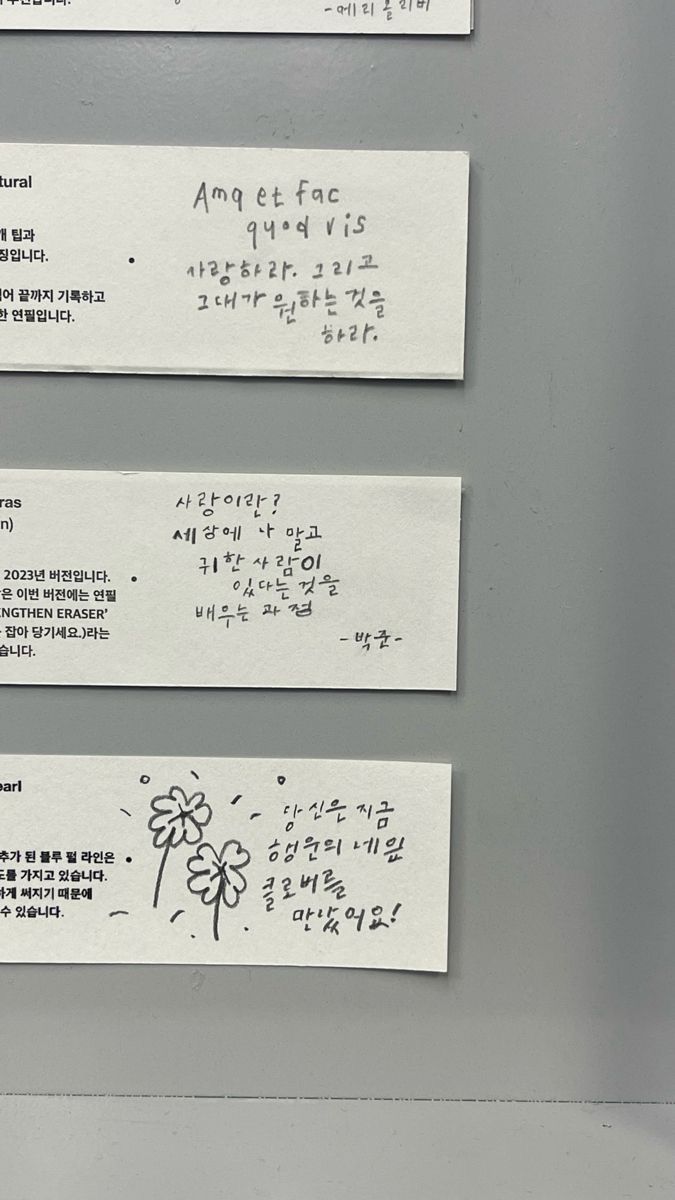 -메리 올리버
tural
팁과
징입니다.
어 끝까지 기록하고
한 연필입니다.
Ama et fac
quod vis
사랑하라. 그리고
그대가 원하는 것을
하라.
ras
n)
2023년 버전입니다.
은 이번 버전에는 연필
ENGTHEN ERASER’
잡아 당기세요.)라는
습니다.
사랑이란?
세상에 나 말고
귀한 사람이
있다는 것을
배우는 과정
-박준-
earl
추가 된 블루 펄 라인은
도를 가지고 있습니다.
하게 써지기 때문에
수 있습니다.
당신은 지금
행운의 네잎
클로버를
만났어요!